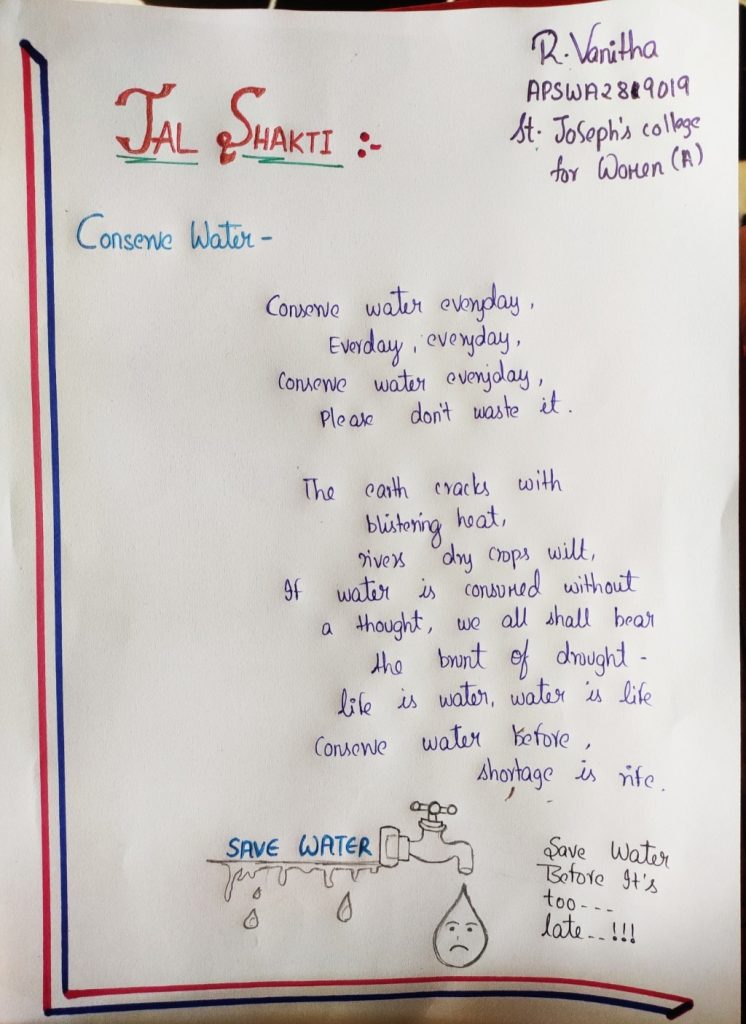 R. Vanitha
APSWA2819019
St. Joseph's college
for Women (A)
JAL SHAKTI :-
Conserve Water -
Conserve water everyday,
Everday, everyday,
Conserve water everyday,
Please don't waste it.
The earth cracks with
blistering heat,
rivers dry crops wilt,
If water is consumed without
a thought, we all shall bear
the brunt of drought -
life is water, water is life
Conserve water before,
shortage is rife.
SAVE WATER
Save Water
Before It's
too---
late..!!!